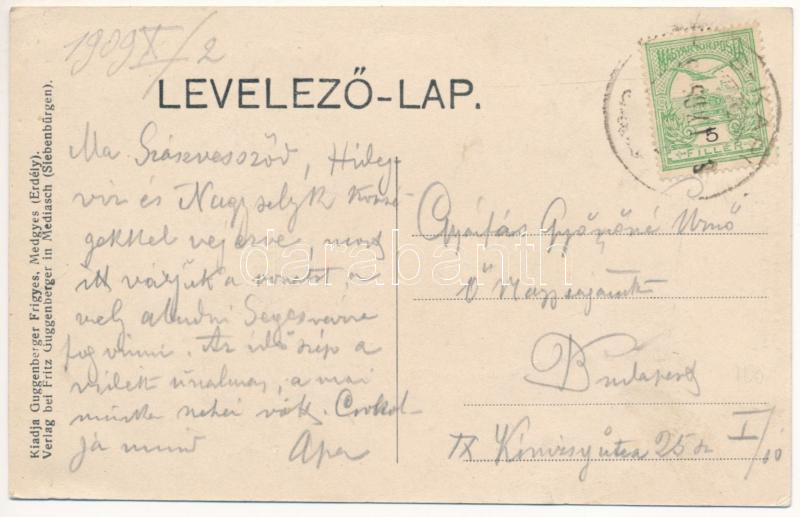 1909 X/2
LEVELEZŐ-LAP.
MAGYAR KIR. POSTA
5
FILLÉR
Kiadja Guggenberger Frigyes, Medgyes (Erdély).
Verlag bei Fritz Guggenberger in Mediasch (Siebenbürgen).
Ma Szászvessződ, Hideg
víz és Nagyselyk közsé
gekkel végezve, most
itt várjuk a vonatot, a
mely aludni Segesvárra
fog vinni. Az idő szép a
vidék unalmas, a mai
munka nehéz volt. Csókol
ja mind Apa
Gyárfás Győzőné Urnő
Ő Nagyságának
Budapest
IX Kinizsy utca 25 sz I/10
darabanth